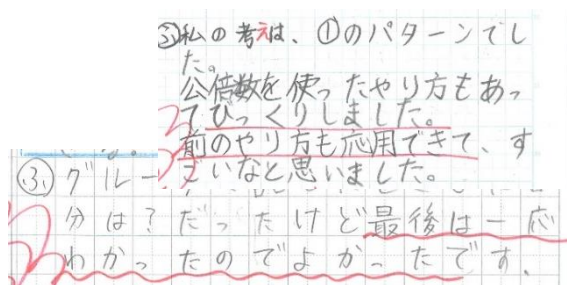 ③私の考えは、①のパターンでし
た。
公倍数を使ったやり方もあっ
てびっくりしました。
前のやり方も応用できて、す
ごいなと思いました。
③グルー
分は？だったけど最後は一応
わかったのでよかったです。